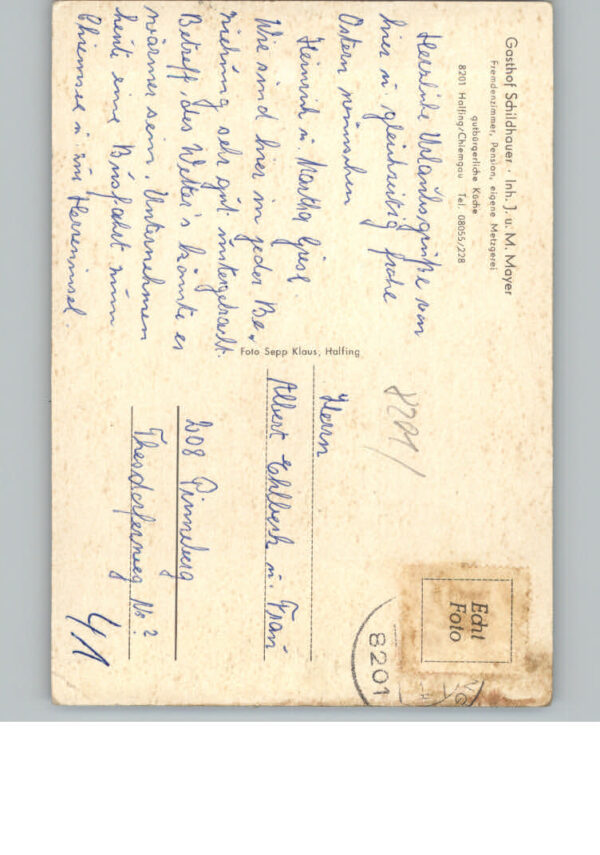 Gasthof Schildhauer · Inh. J. u. M. Mayer
Fremdenzimmer, Pension, eigene Metzgerei
gutbürgerliche Küche
8201 Halfing/Chiemgau Tel. 08055/228
Herrliche Urlaubsgrüße von
hier u. gleichzeitig frohe
Ostern wünschen
Heinrich u. Martha
Wir sind hier in jeder Be-
ziehung sehr gut untergebracht.
Betreff des Wetter's könnte es
wärmer sein. Unternehmen
heute eine Busfahrt zum
Chiemsee u. zur Herreninsel.
Foto Sepp Klaus, Halfing
8201/
Herrn
Albert u. Frau
208 Pinneberg
Thesdorferweg No 2
Echt
Foto
8201